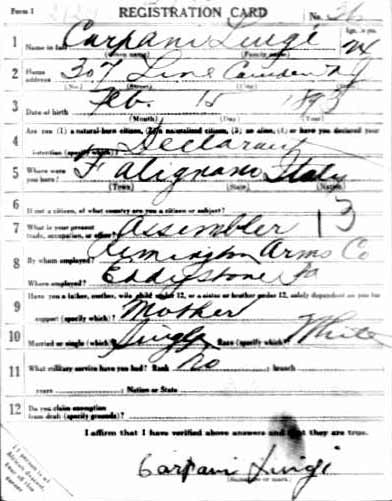 Form 1 REGISTRATION CARD No. 36
1 Name in full Carpani Luigi Age, in yrs. 24
(Given name) (Family name)
2 Home address 307 Line Camden NJ
(No.) (Street) (City) (State)
3 Date of birth Feb. 15 1893
(Month) (Day) (Year)
Are you (1) a natural-born citizen, (2) a naturalized citizen, (3) an alien, (4) or have you declared your
4 intention (specify which)? Declarant
5 Where were you born? Falignano Italy
(Town) (State) (Nation)
6 If not a citizen, of what country are you a citizen or subject?
7 What is your present trade, occupation, or office? Assembler 13
8 By whom employed? Remington Arms Co
Where employed? Eddystone Pa
9 Have you a father, mother, wife, child under 12, or a sister or brother under 12, solely dependent on you for
support (specify which)? Mother
10 Married or single (which)? Single Race (specify which)? White
11 What military service have you had? Rank No ; branch
years ; Nation or State
12 Do you claim exemption from draft (specify grounds)?
I affirm that I have verified above answers and that they are true.
Carpani Luigi
(Signature or mark)